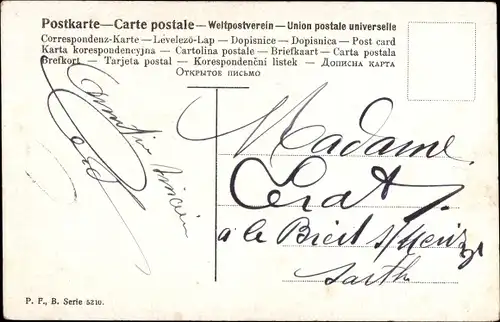 Postkarte — Carte postale — Weltpostverein — Union postale universelle
Correspondenz-Karte — Levelező-Lap — Dopisnice — Dopisnica — Post card
Karta korespondencyjna — Cartolina postale — Briefkaart — Carta postala
Brefkort — Tarjeta postal — Korespondenční listek — Дописна карта
Открытое письмо
Madame
Cerat
à le Breil s/
Sarth
P. F., B. Serie 5210.